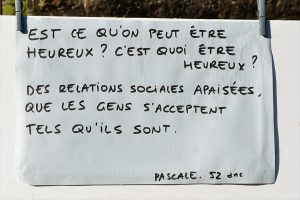 EST CE QU'ON PEUT ÊTRE
HEUREUX ? C'EST QUOI ÊTRE
HEUREUX ?
DES RELATIONS SOCIALES APAISÉES,
QUE LES GENS S'ACCEPTENT
TELS QU'ILS SONT.
PASCALE. 52 ans